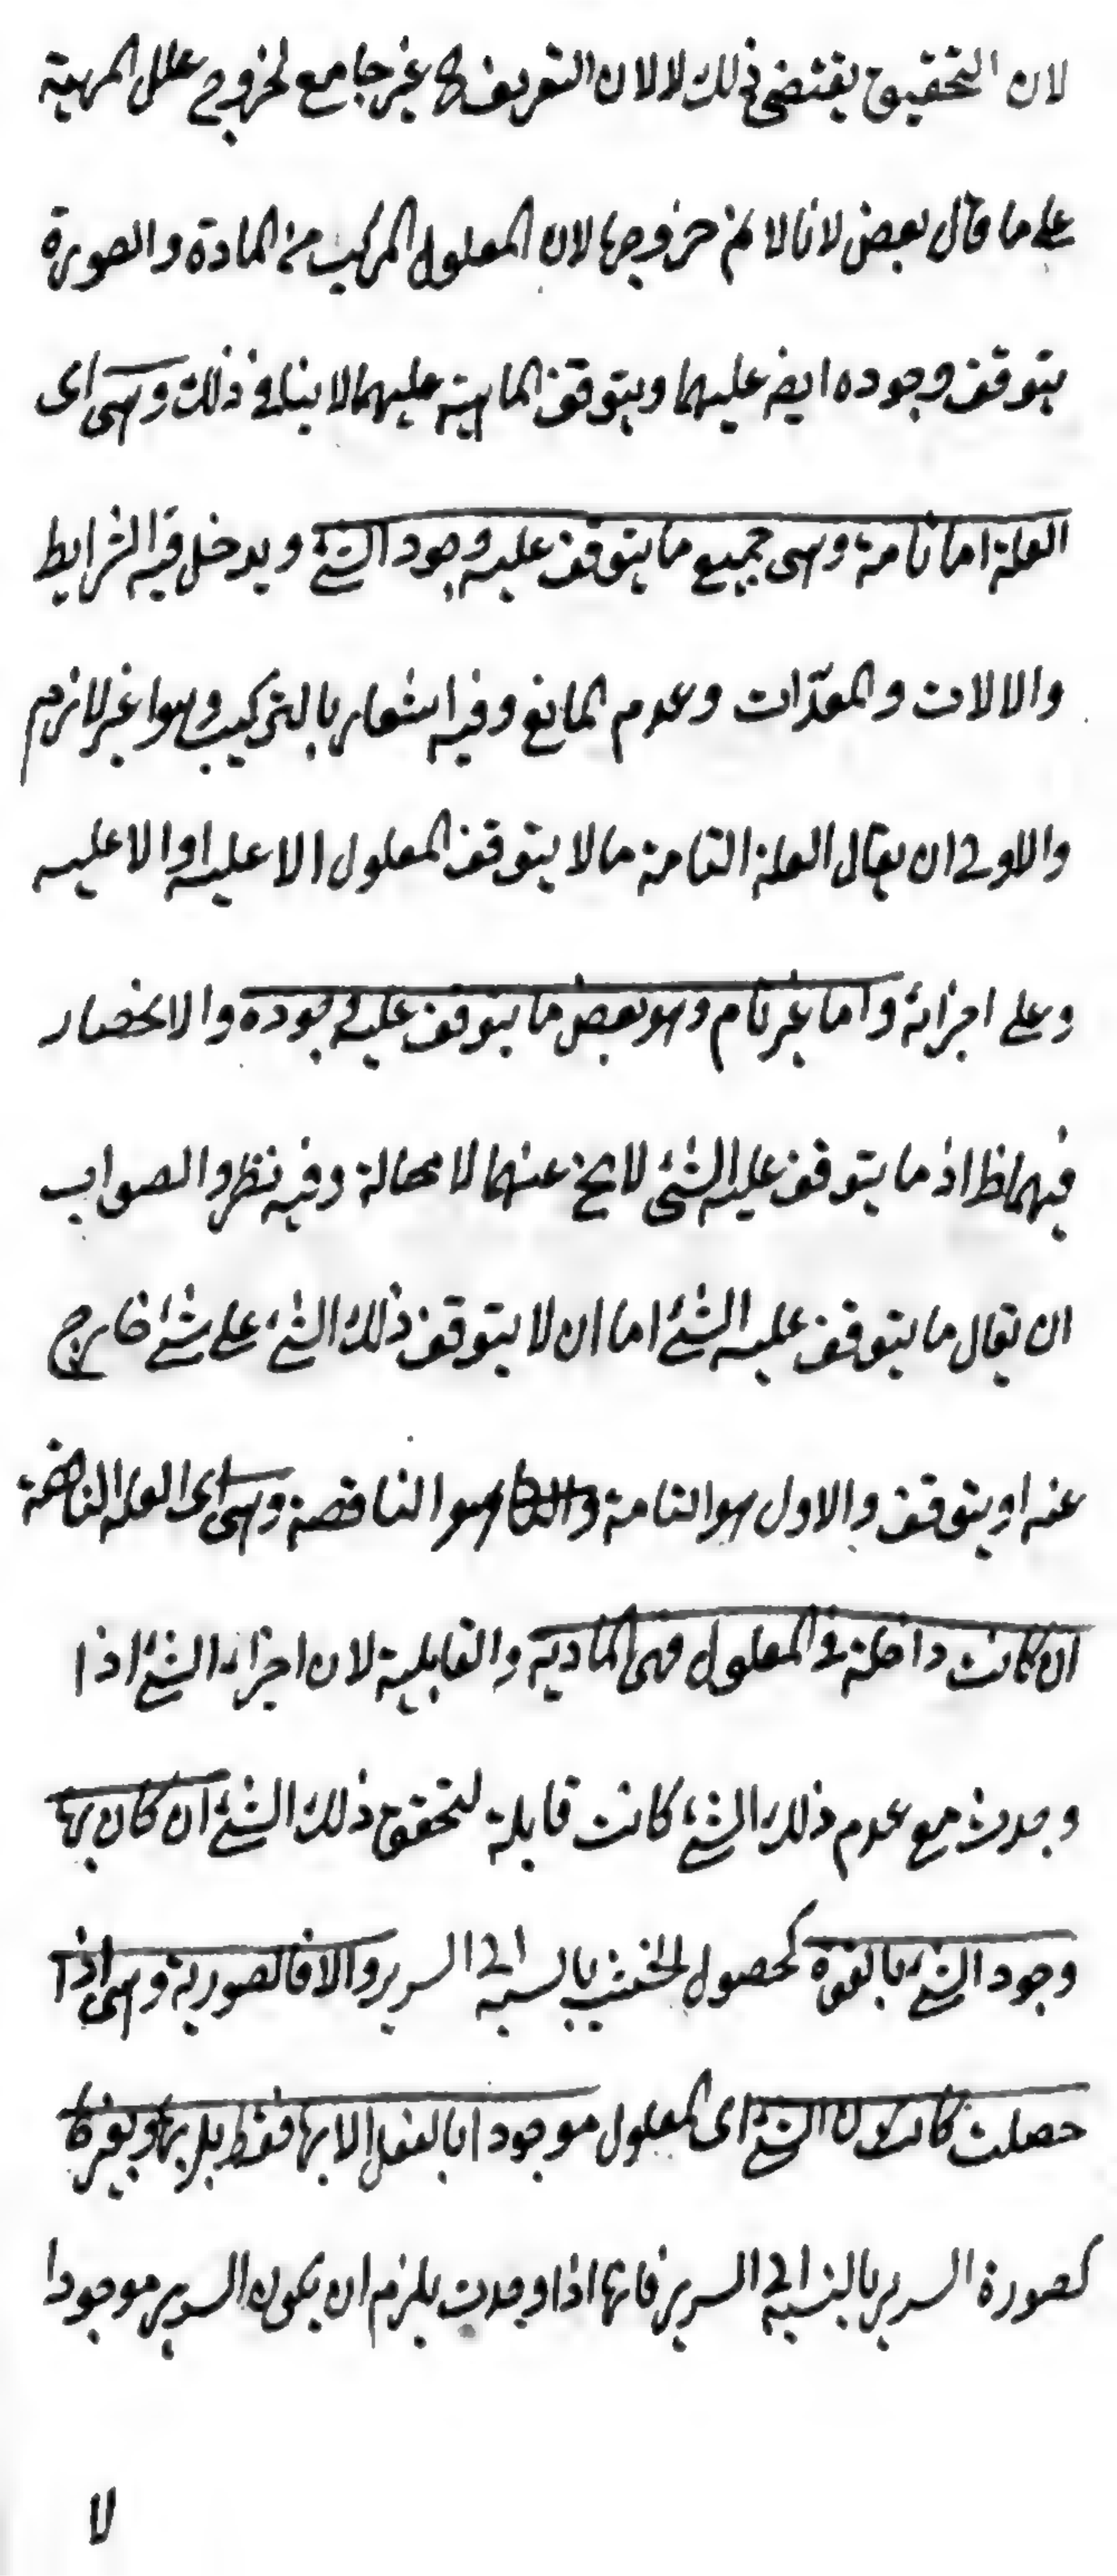 لان التحقيق يقتضى ذلك لا لان التعريف كا غير جامع لخروج علل المهية
على ما قال بعض لانا لا نم خروجها لان المعلول المركب من المادة والصورة
يتوقف وجوده ايضه عليهما ويتوقف الماهية عليهما لا ينافى ذلك وهى اى
العلة اما تامة وهى جميع ما يتوقف عليه وجود الشئ ويدخل فيه الشرايط
والالات والمعدّات وعدم المانع وفيه اشعار بالتركيب وهوا غير لازم
والاولى ان يقال العلة التامة ما لا يتوقف المعلول الا عليه او الا عليه
وعلى اجزائه واما غير تام وهو بعض ما يتوقف عليه وجوده والانحصار
فيهما ظ اذ ما يتوقف عليه الشئ لا يخ عنهما لا محالة وفيه نظر والصواب
ان يقال ما يتوقف عليه الشئ اما ان لا يتوقف ذلك الشئ على شئ خارج
عنه او يتوقف والاول هو التامة هو الناقصة وهى اى العلة الناقصة
ان كانت داخلة فى المعلول فهى المادية والقابلية لان اجزاء الشئ اذا
وجدت مع عدم ذلك الشئ كانت قابلة لتحقق ذلك الشئ ان كان بها
وجود الشئ بالقوة كحصول الخشب بالنسبة الى السرير والا فالصورية وهى اذا
حصلت كانت الشئ اى المعلول موجودا بالفعل لا بها فقط بل بها وبغيرها
كصورة السرير بالنسبة الى السرير فانها اذا وجدت يلزم ان يكون السرير موجودا
لا